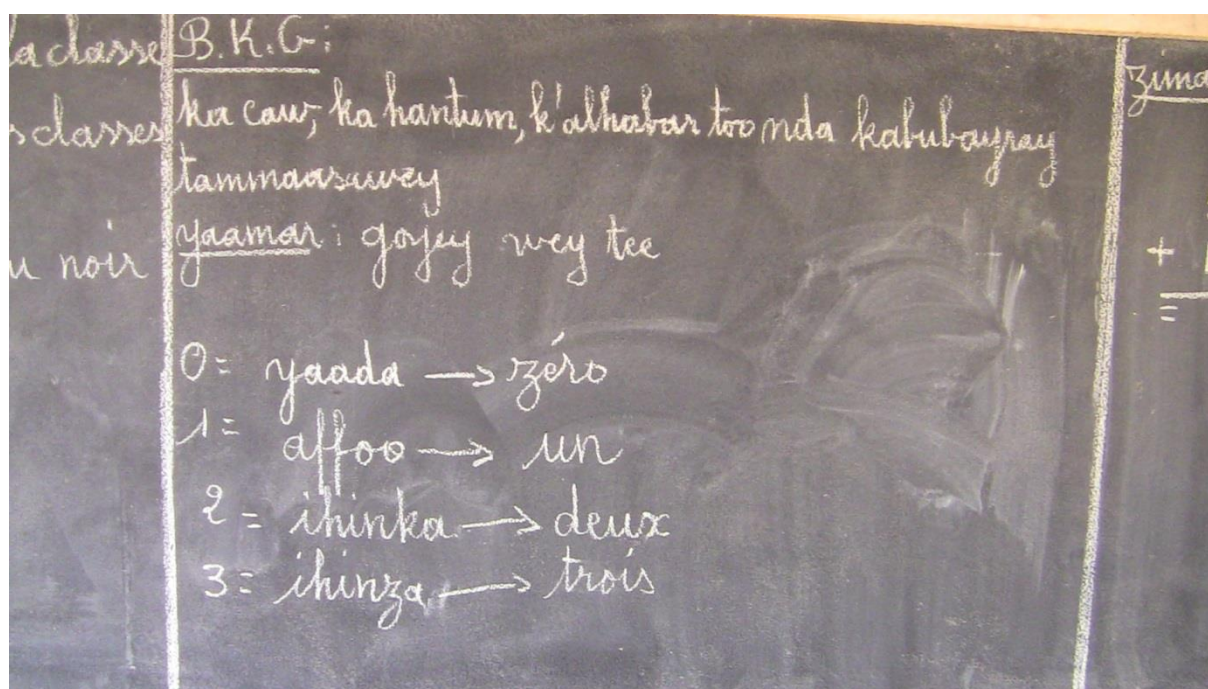 la classe
s classes
u noir
B.K.G:
ka caw, ka hantum, k'alhabar too nda kabubayray
tammaasawey
yaamar: goyey wey tee
0 = yaada → zéro
1 = affoo → un
2 = ihinka → deux
3 = ihinza → trois
zima
+
=